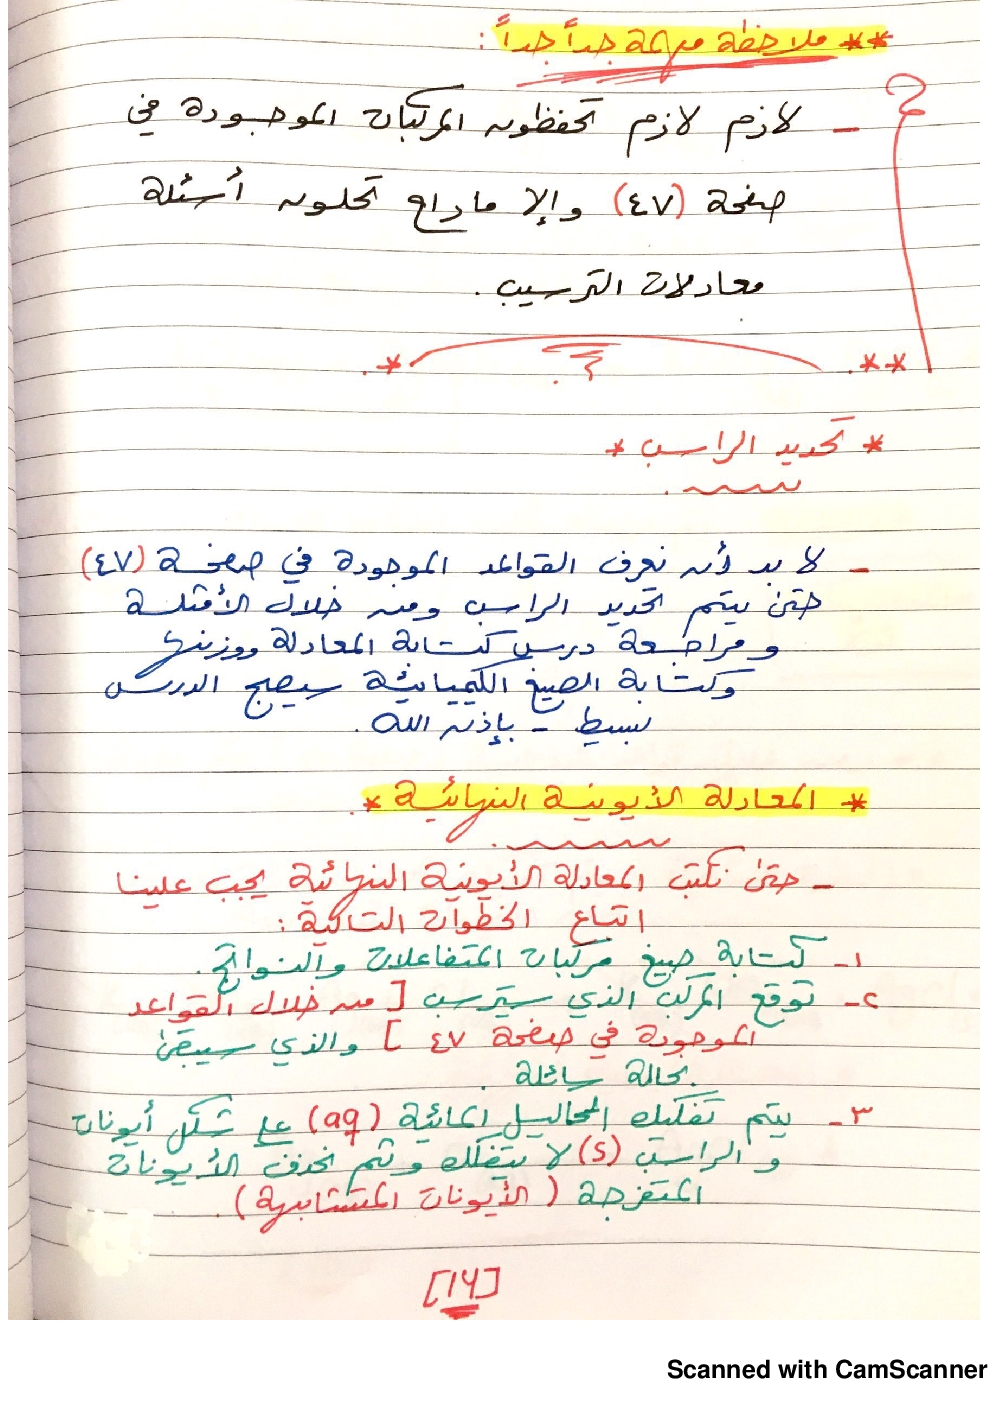 ** ملاحظة مهمة جداً جداً :
- لازم لازم تحفظون المركبات الموجودة في
صفحة (٤٧) وإلا ماراح تحلون أسئلة
معادلات الترسيب .
* تحديد الراسب *
- لا بد أن نعرف القواعد الموجودة في صفحة (٤٧)
حتى يتم تحديد الراسب ومن خلال الأمثلة
ومراجعة درس كتابة المعادلة ووزنها
وكتابة الصيغ الكيميائية سيصبح الدرس
بسيط - بإذن الله .
* المعادلة الأيونية النهائية *
- حتى نكتب المعادلة الأيونية النهائية يجب علينا
اتباع الخطوات التالية :
١- كتابة صيغ مركبات المتفاعلات والنواتج .
٢- توقع المركب الذي سيترسب [ من خلال القواعد
الموجودة في صفحة ٤٧ ] والذي سيبقى
بحالة سائلة .
٣- يتم تفكيك المحاليل المائية (aq) على شكل أيونات
والراسب (s) لا يتفكك وثم نحذف الأيونات
المتفرجة ( الأيونات المتشابهة ) .
[١٦]
Scanned with CamScanner